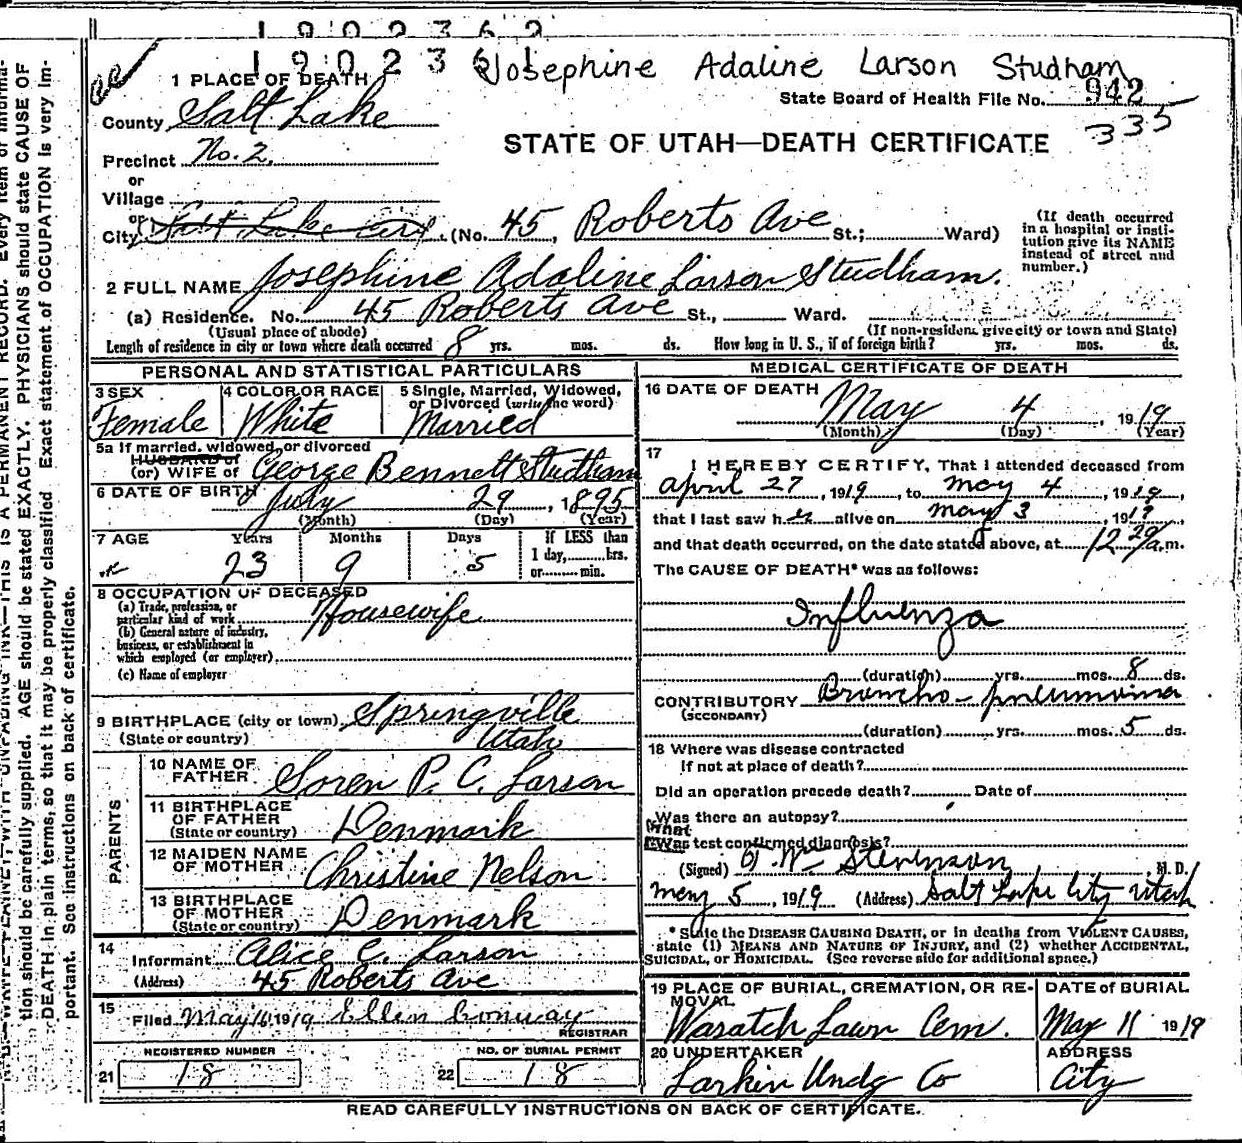 1902362
190236
Josephine Adaline Larson Studham
1 PLACE OF DEATH
State Board of Health File No. 942
335
County Salt Lake
STATE OF UTAH—DEATH CERTIFICATE
Precinct No. 2.
or
Village
or
City Salt Lake City (No. 45, Roberts Ave St.; Ward)
(If death occurred in a hospital or insti-
tution give its NAME
instead of street and
number.)
2 FULL NAME Josephine Adaline Larson Studham.
(a) Residence. No. 45 Roberts Ave St., Ward.
(Usual place of abode) (If non-resident give city or town and State)
Length of residence in city or town where death occurred 8 yrs. mos. ds. How long in U. S., if of foreign birth? yrs. mos. ds.
PERSONAL AND STATISTICAL PARTICULARS
3 SEX 4 COLOR OR RACE 5 Single, Married, Widowed,
or Divorced (write the word)
Female White Married
5a If married, widowed, or divorced
HUSBAND of
(or) WIFE of George Bennett Studham
6 DATE OF BIRTH July 29, 1895
(Month) (Day) (Year)
7 AGE Years Months Days If LESS than
1 day, hrs.
or min.
23 9 5
8 OCCUPATION OF DECEASED
(a) Trade, profession, or
particular kind of work Housewife
(b) General nature of industry,
business, or establishment in
which employed (or employer)
(c) Name of employer
9 BIRTHPLACE (city or town) Springville
(State or country) Utah
PARENTS
10 NAME OF
FATHER Soren P. C. Larson
11 BIRTHPLACE
OF FATHER
(State or country) Denmark
12 MAIDEN NAME
OF MOTHER Christine Nelson
13 BIRTHPLACE
OF MOTHER
(State or country) Denmark
14
Informant Alice C. Larson
(Address) 45 Roberts Ave
15
Filed May 16, 1919 Ellen Conway
REGISTRAR
REGISTERED NUMBER NO. OF BURIAL PERMIT
21 18 22 18
MEDICAL CERTIFICATE OF DEATH
16 DATE OF DEATH
May 4, 1919
(Month) (Day) (Year)
17
I HEREBY CERTIFY, That I attended deceased from
April 27, 1919, to May 4, 1919,
that I last saw her alive on May 3, 1919
and that death occurred, on the date stated above, at 12 20 a.m.
The CAUSE OF DEATH* was as follows:
Influenza
(duration) yrs. mos. 8 ds.
CONTRIBUTORY Broncho-pneumonia
(SECONDARY)
(duration) yrs. mos. 5 ds.
18 Where was disease contracted
if not at place of death?
Did an operation precede death? Date of
Was there an autopsy?
What
Was test confirmed diagnosis?
(Signed) Wm Stevenson M. D.
May 5, 1919 (Address) Salt Lake City Utah
* State the DISEASE CAUSING DEATH, or in deaths from VIOLENT CAUSES,
state (1) MEANS AND NATURE OF INJURY, and (2) whether ACCIDENTAL,
SUICIDAL, or HOMICIDAL. (See reverse side for additional space.)
19 PLACE OF BURIAL, CREMATION, OR RE-
MOVAL
Wasatch Lawn Cem.
DATE of BURIAL
May 11 1919
20 UNDERTAKER
Larkin Undg Co
ADDRESS
City
READ CAREFULLY INSTRUCTIONS ON BACK OF CERTIFICATE.
tion should be carefully supplied. AGE should be stated EXACTLY. PHYSICIANS should state CAUSE OF
DEATH in plain terms, so that it may be properly classified. Exact statement of OCCUPATION is very im-
portant. See instructions on back of certificate.